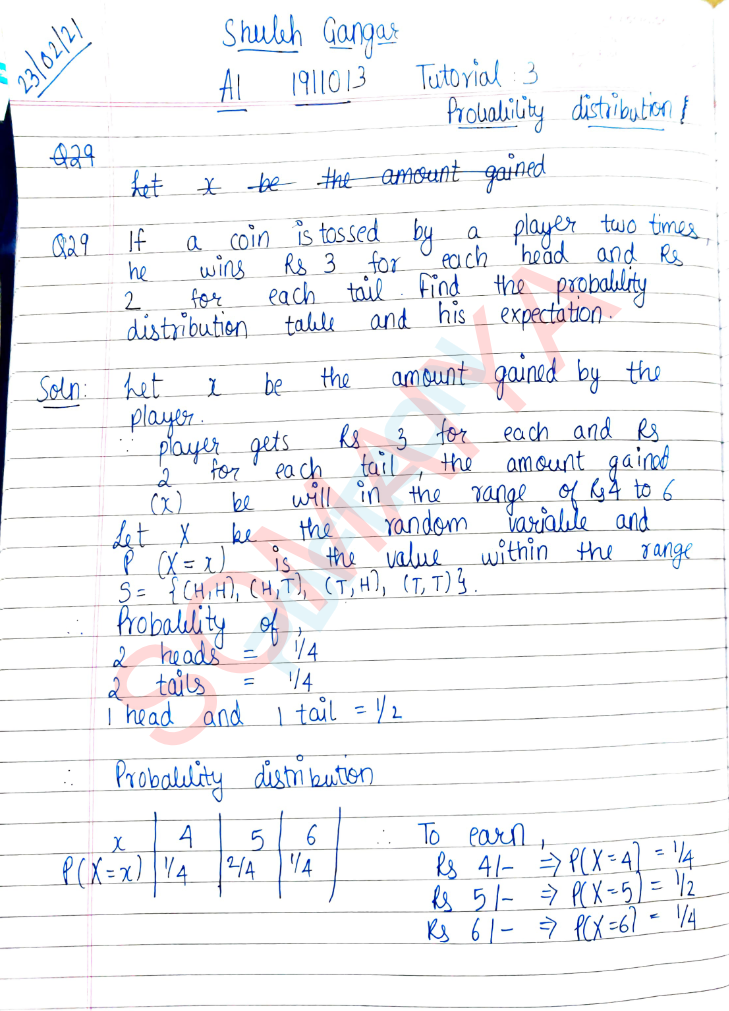 23/02/21
Shuleh Gangar
A1 1911013 Tutorial : 3
Probability distribution
Q29
Let x be the amount gained
Q29 If a coin is tossed by a player two times,
he wins Rs 3 for each head and Rs
2 for each tail. Find the probability
distribution table and his expectation.
Soln: Let x be the amount gained by the
player.
∵ player gets Rs 3 for each and Rs
2 for each tail, the amount gained
(x) be will in the range of Rs 4 to 6
Let X be the random variable and
P (X = x) is the value within the range
S = {(H,H), (H,T), (T,H), (T,T)}.
∴ Probability of,
2 heads = 1/4
2 tails = 1/4
1 head and 1 tail = 1/2
∴ Probability distribution
x 4 5 6
P(X=x) 1/4 2/4 1/4
∴ To earn,
Rs 4/- ⇒ P(X=4) = 1/4
Rs 5/- ⇒ P(X=5) = 1/2
Rs 6/- ⇒ P(X=6) = 1/4
SOMAIYA